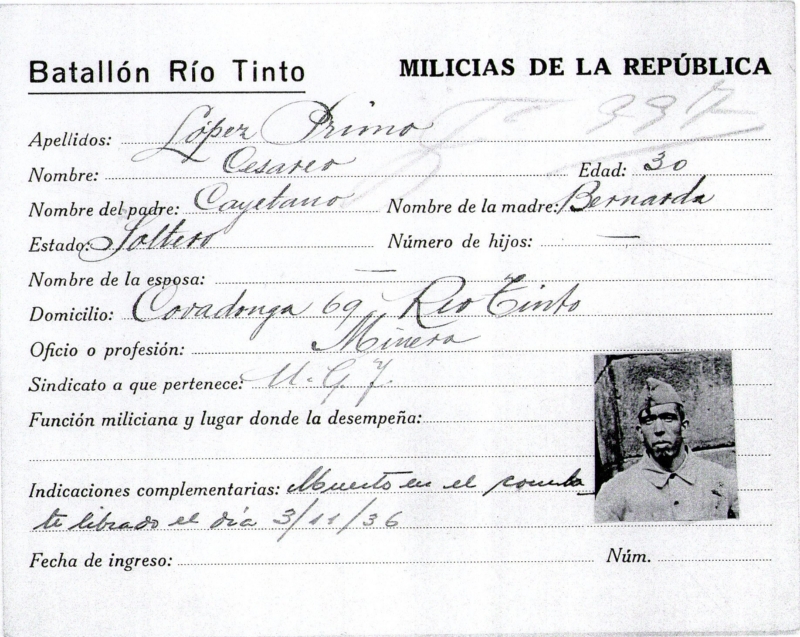 Batallón Río Tinto MILICIAS DE LA REPÚBLICA
Apellidos: López Primo
337
Nombre: Cesareo Edad: 30
Nombre del padre: Cayetano Nombre de la madre: Bernarda
Estado: Soltero Número de hijos: —
Nombre de la esposa: —
Domicilio: Covadonga 69 Rio Tinto
Oficio o profesión: Minero
Sindicato a que pertenece: U.G.T.
Función miliciana y lugar donde la desempeña:
Indicaciones complementarias: Muerto en el comba
te librado el día 3/11/36
Fecha de ingreso: Núm.